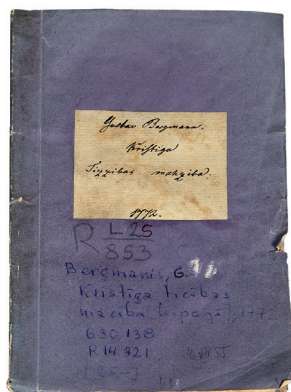 Gustav Bergmann.
Kristiga
Tizzibas mahziba.
1772.
R L25
853
Bergmanis, G.
Kristīgā ticības
mācība Leipcigā, 177
630 138
R 14 921
[25-]